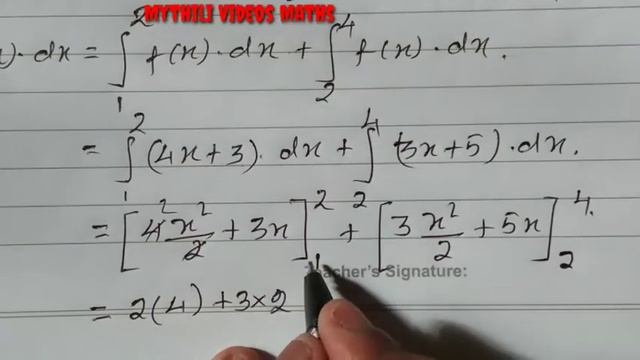 MYTHILI VIDEOS MATHS
x)·dx = ∫₁² f(x)·dx + ∫₂⁴ f(x)·dx.
= ∫₁² (4x+3)·dx + ∫₂⁴ (3x+5)·dx.
= [4² x²/2 + 3x]₁² + ² [3 x²/2 + 5x]₂⁴.
Teacher's Signature:
= 2(4) + 3×2